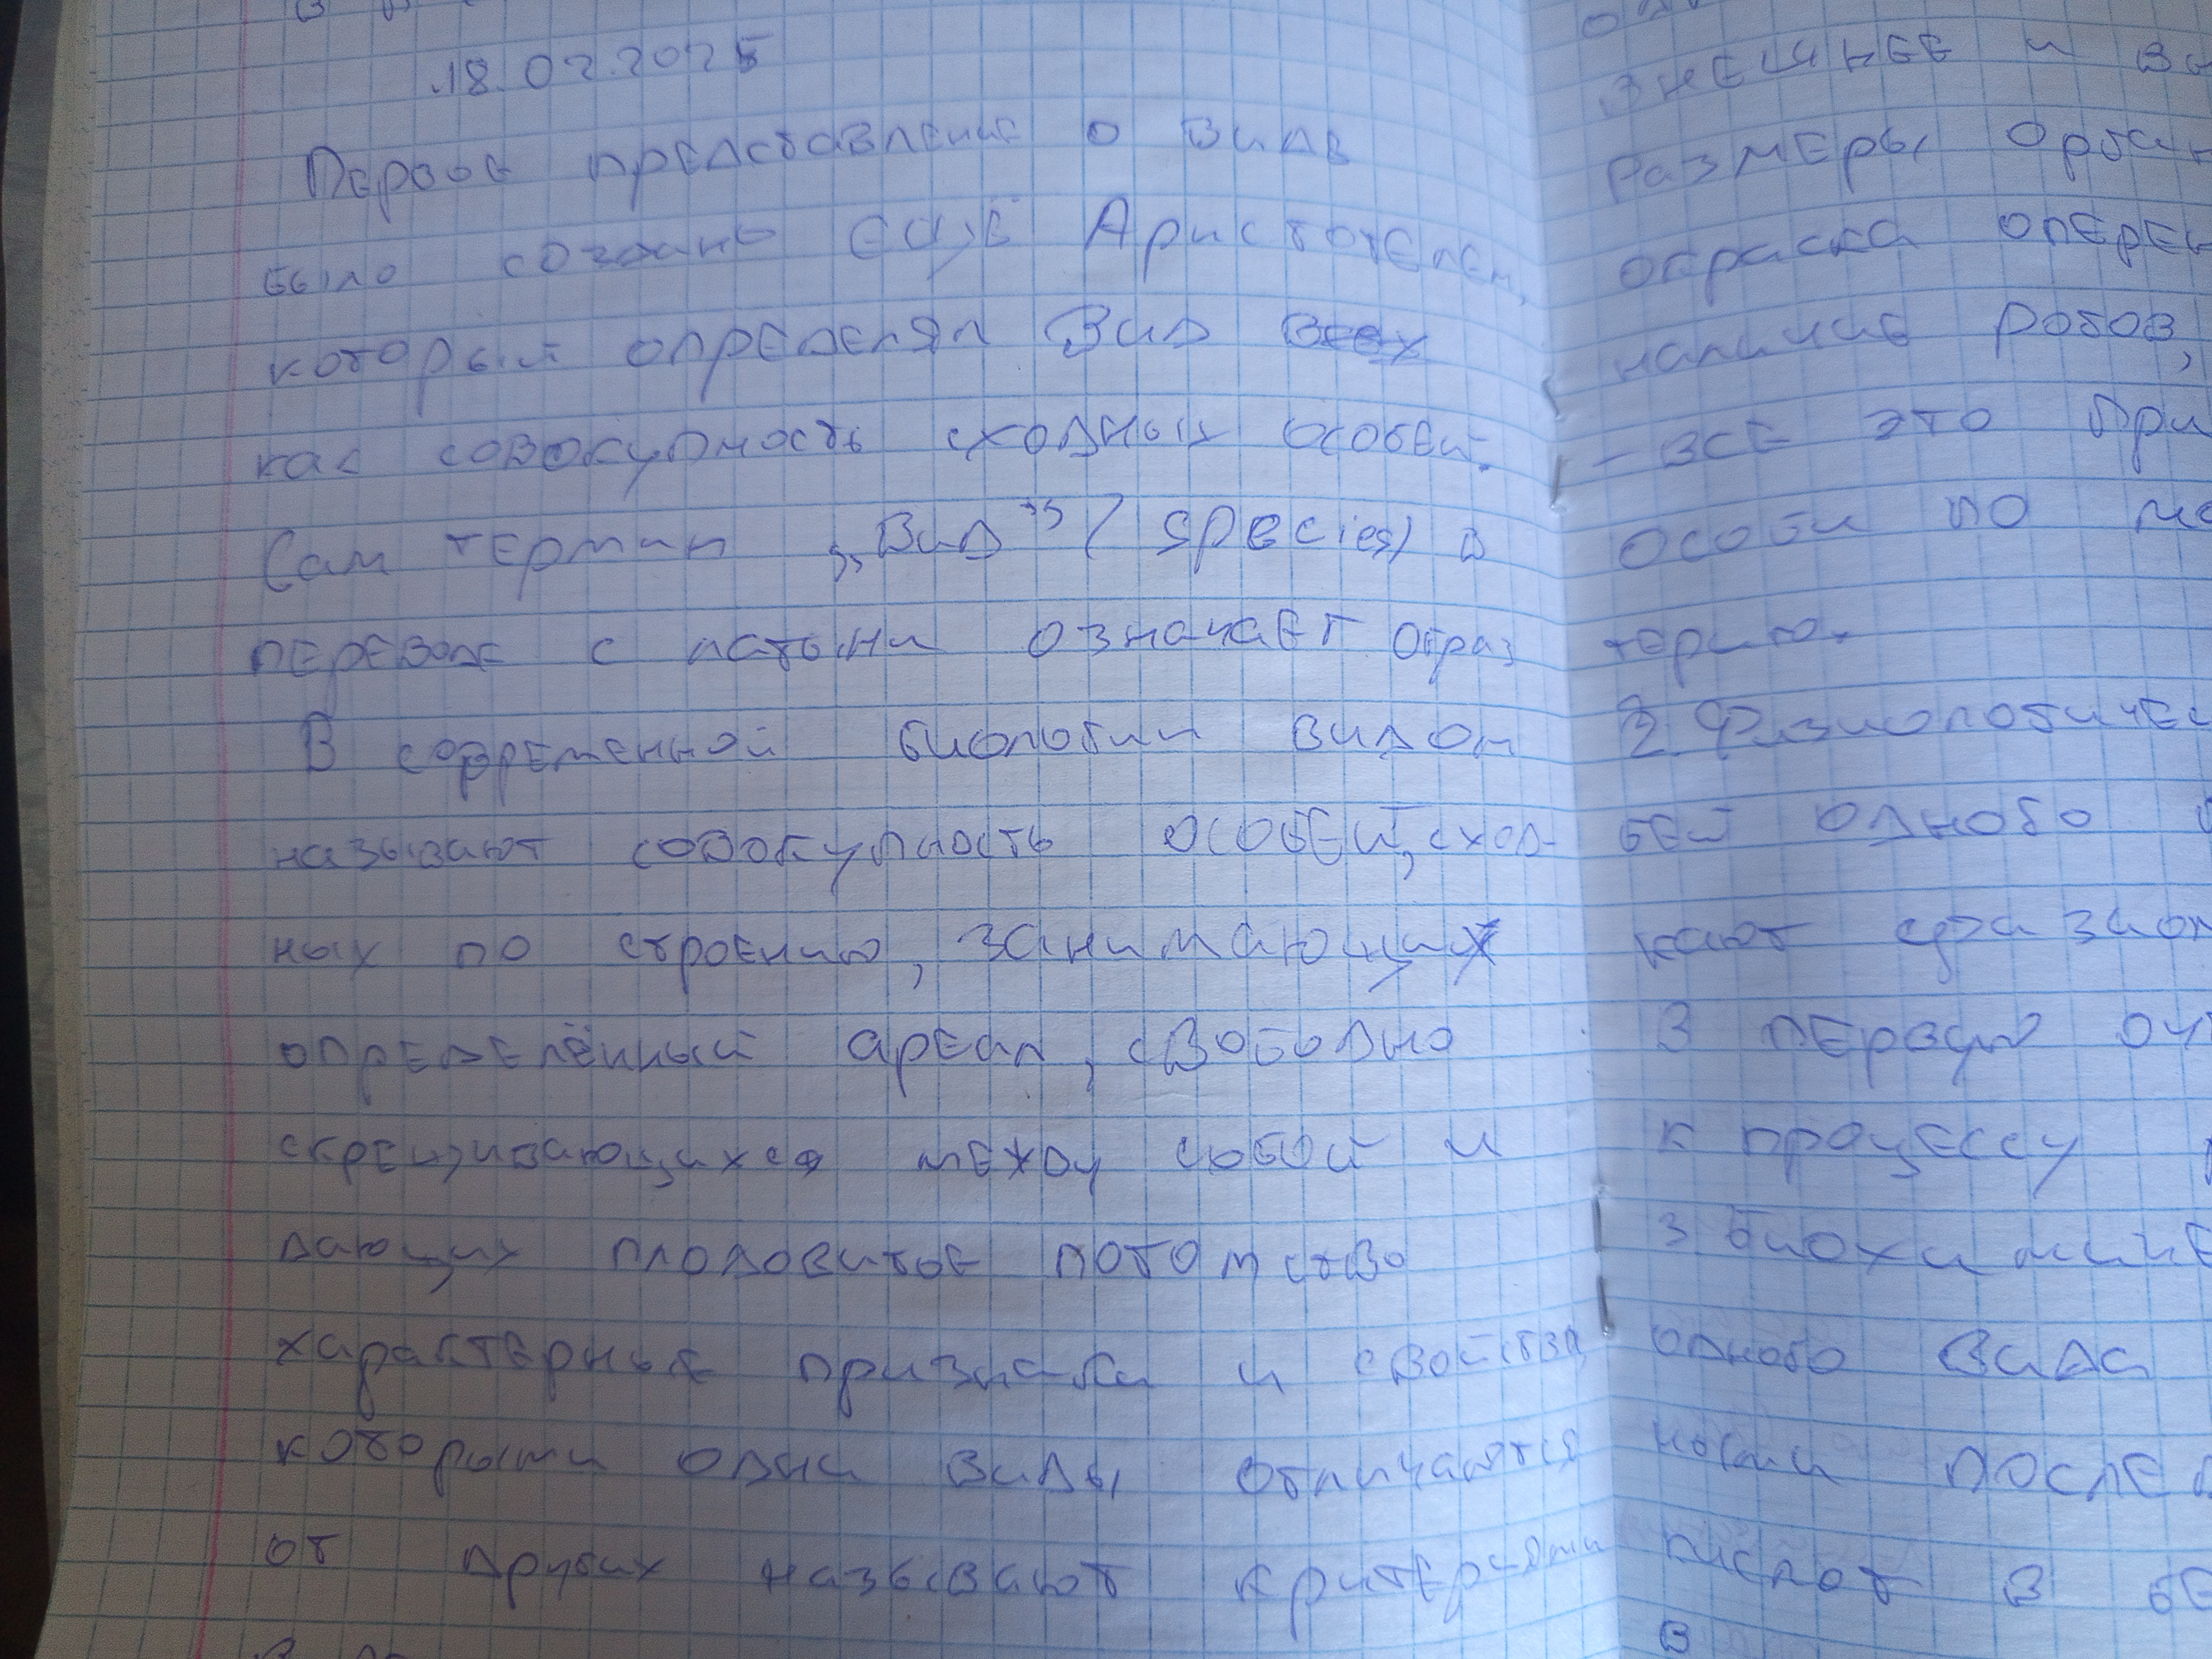 18.02.2025
Первое представление о виде
было создано ещё Аристотелем,
который определял вид
как совокупность сходных особей.
Сам термин „Вид” (species) в
переводе с латыни означает образ
В современной биологии видом
называют совокупность особей, сход-
ных по строению, занимающих
определённый ареал, свободно
скрещивающихся между собой и
дающих плодовитое потомство
характерные признаки и свойства,
которыми одни виды отличаются
от других называют критериями
внешнее и
размеры
окраска
наличие рогов,
- все это
особи по
терию.
2. Физиологичес
бей одного
кают
В первую
к процессу
3 биохимиче
одного вида
ными
кислот в
в